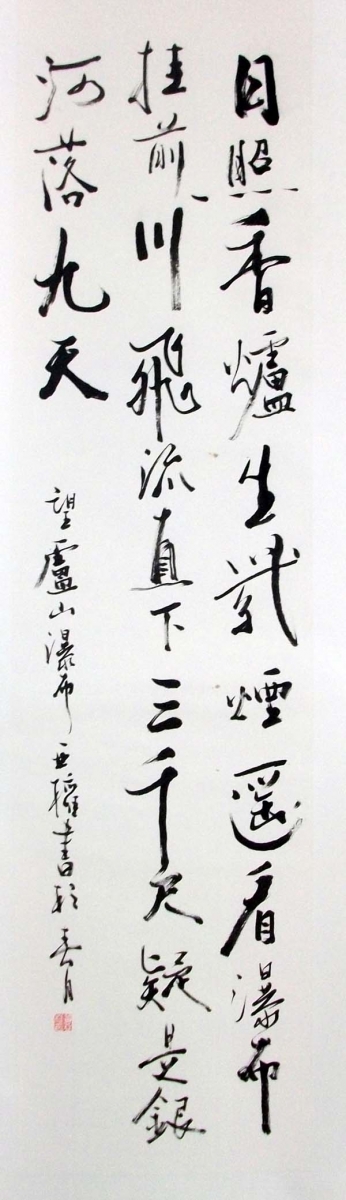 日照香爐生紫煙遙看瀑布
挂前川飛流直下三千尺疑是銀
河落九天
望盧山瀑布 書於春月